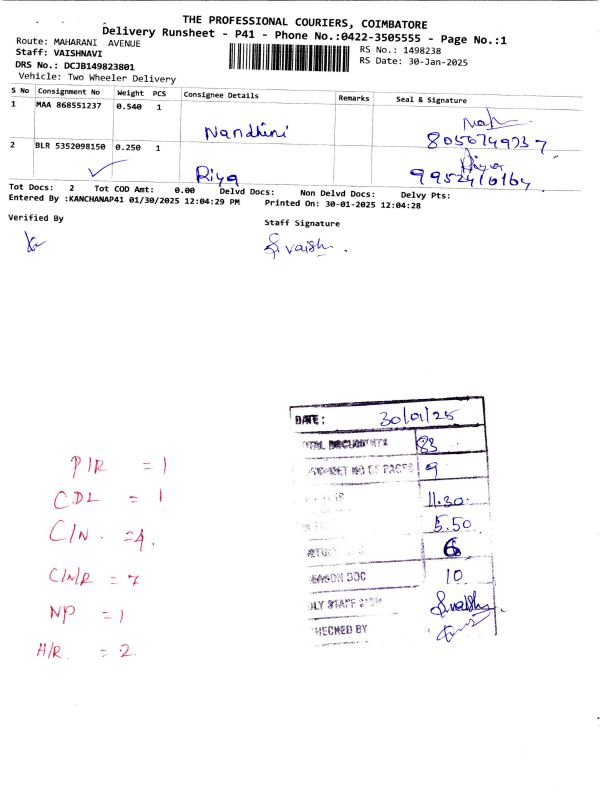 THE PROFESSIONAL COURIERS, COIMBATORE
Delivery Runsheet - P41 - Phone No.:0422-3505555 - Page No.:1
Route: MAHARANI AVENUE
Staff: VAISHNAVI
RS No.: 1498238
DRS No.: DCJB149823801
RS Date: 30-Jan-2025
Vehicle: Two Wheeler Delivery
S No Consignment No Weight PCS Consignee Details Remarks Seal & Signature
1 MAA 868551237 0.540 1
Nandhini
8056749237
2 BLR 5352098150 0.250 1
Riya
Riya
9952416164
Tot Docs: 2 Tot COD Amt: 0.00 Delvd Docs: Non Delvd Docs: Delvy Pts:
Entered By :KANCHANAP41 01/30/2025 12:04:29 PM Printed On: 30-01-2025 12:04:28
Verified By
Staff Signature
S.vaish
DATE: 30/01/25
83
NO OF PAGES 9
11.30
5.50
6
DOC 10
STAFF SIGN S.vaish
CHECKED BY
P/R = 1
CDL = 1
C/N. = 4.
C/N/R = 7
NP = 1
H/R = 2